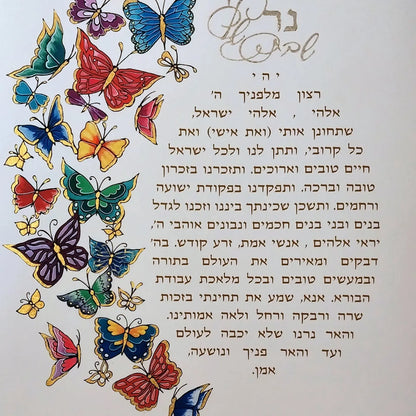 נר
של שבת
יהי
רצון מלפניך ה'
אלהי , אלהי ישראל,
שתחונן אותי (ואת אישי) ואת
כל קרובי, ותתן לנו ולכל ישראל
חיים טובים וארוכים. ותזכרנו בזכרון
טובה וברכה. ותפקדנו בפקודת ישועה
ורחמים. ותשכן שכינתך ביננו וזכנו לגדל
בנים ובני בנים חכמים ונבונים אוהבי ה',
יראי אלהים , אנשי אמת, זרע קודש. בה'
דבקים ומאירים את העולם בתורה
ובמעשים טובים ובכל מלאכת עבודת
הבורא. אנא, שמע את תחינתי בזכות
שרה ורבקה ורחל ולאה אמותינו.
והאר נרנו שלא יכבה לעולם
ועד והאר פניך ונושעה,
אמן.